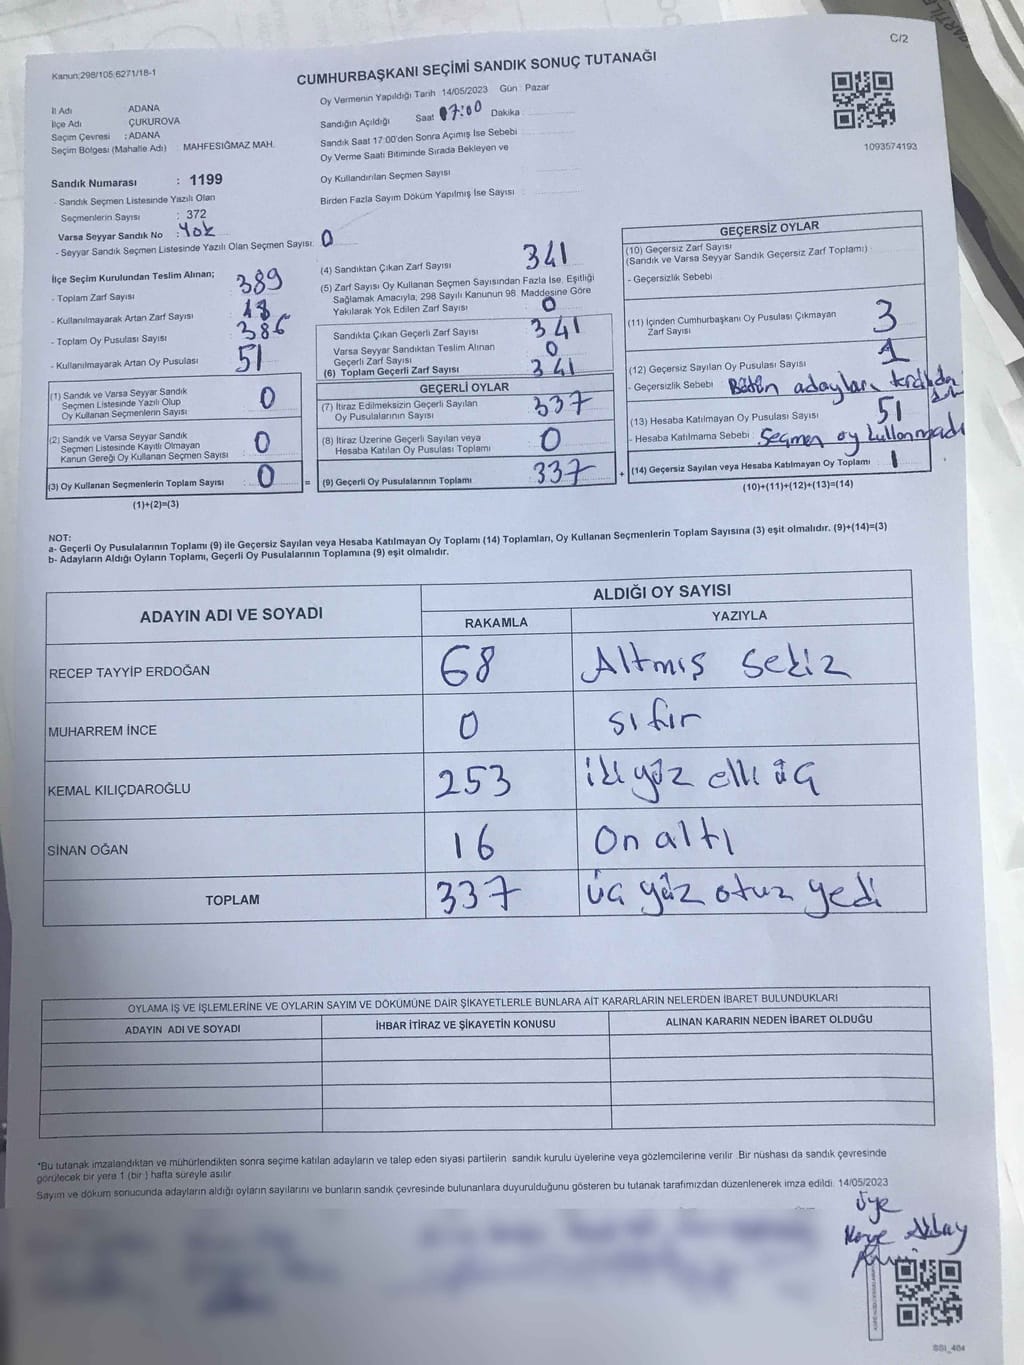 C/2
Kanun;298/105;6271/18-1
CUMHURBAŞKANI SEÇİMİ SANDIK SONUÇ TUTANAĞI
İl Adı ADANA
İlçe Adı ÇUKUROVA
Seçim Çevresi : ADANA
Seçim Bölgesi (Mahalle Adı) MAHFESIĞMAZ MAH.
Oy Vermenin Yapıldığı Tarih 14/05/2023 Gün : Pazar
Sandığın Açıldığı Saat 07:00 Dakika
Sandık Saat 17:00'den Sonra Açımış İse Sebebi
Oy Verme Saati Bitiminde Sırada Bekleyen ve
Oy Kullandırılan Seçmen Sayısı
Birden Fazla Sayım Döküm Yapılmış İse Sayısı
1093574193
Sandık Numarası : 1199
- Sandık Seçmen Listesinde Yazılı Olan
Seçmenlerin Sayısı : 372
Varsa Seyyar Sandık No : Yok
- Seyyar Sandık Seçmen Listesinde Yazılı Olan Seçmen Sayısı: 0
İlçe Seçim Kurulundan Teslim Alınan;
- Toplam Zarf Sayısı 389
- Kullanılmayarak Artan Zarf Sayısı
- Toplam Oy Pusulası Sayısı : 386
- Kullanılmayarak Artan Oy Pusulası 51
(1) Sandık ve Varsa Seyyar Sandık
Seçmen Listesinde Yazılı Olup
Oy Kullanan Seçmenlerin Sayısı : 0
(2) Sandık ve Varsa Seyyar Sandık
Seçmen Listesinde Kayıtlı Olmayan
Kanun Gereği Oy Kullanan Seçmen Sayısı : 0
(3) Oy Kullanan Seçmenlerin Toplam Sayısı : 0
(1)+(2)=(3)
(4) Sandıktan Çıkan Zarf Sayısı 341
(5) Zarf Sayısı Oy Kullanan Seçmen Sayısından Fazla İse, Eşitliği
Sağlamak Amacıyla; 298 Sayılı Kanunun 98. Maddesine Göre
Yakılarak Yok Edilen Zarf Sayısı 0
Sandıkta Çıkan Geçerli Zarf Sayısı 341
Varsa Seyyar Sandıktan Teslim Alınan
Geçerli Zarf Sayısı 0
(6) Toplam Geçerli Zarf Sayısı 341
GEÇERLİ OYLAR
(7) İtiraz Edilmeksizin Geçerli Sayılan
Oy Pusulalarının Sayısı 337
(8) İtiraz Üzerine Geçerli Sayılan veya
Hesaba Katılan Oy Pusulası Toplamı 0
= (9) Geçerli Oy Pusulalarının Toplamı 337 +
GEÇERSİZ OYLAR
(10) Geçersiz Zarf Sayısı
(Sandık ve Varsa Seyyar Sandık Geçersiz Zarf Toplamı)
- Geçersizlik Sebebi
(11) İçinden Cumhurbaşkanı Oy Pusulası Çıkmayan
Zarf Sayısı 3
(12) Geçersiz Sayılan Oy Pusulası Sayısı 1
- Geçersizlik Sebebi : Bütün adayları
(13) Hesaba Katılmayan Oy Pusulası Sayısı 51
- Hesaba Katılmama Sebebi : Seçmen oy kullanmadı
(14) Geçersiz Sayılan veya Hesaba Katılmayan Oy Toplamı : 1
(10)+(11)+(12)+(13)=(14)
NOT:
a- Geçerli Oy Pusulalarının Toplamı (9) ile Geçersiz Sayılan veya Hesaba Katılmayan Oy Toplamı (14) Toplamları, Oy Kullanan Seçmenlerin Toplam Sayısına (3) eşit olmalıdır. (9)+(14)=(3)
b- Adayların Aldığı Oyların Toplamı, Geçerli Oy Pusulalarının Toplamına (9) eşit olmalıdır.
ADAYIN ADI VE SOYADI ALDIĞI OY SAYISI
RAKAMLA YAZIYLA
RECEP TAYYİP ERDOĞAN 68 Altmış sekiz
MUHARREM İNCE 0 sıfır
KEMAL KILIÇDAROĞLU 253 iki yüz elli üç
SİNAN OĞAN 16 On altı
TOPLAM 337 üç yüz otuz yedi
OYLAMA İŞ VE İŞLEMLERİNE VE OYLARIN SAYIM VE DÖKÜMÜNE DAİR ŞİKAYETLERLE BUNLARA AİT KARARLARIN NELERDEN İBARET BULUNDUKLARI
ADAYIN ADI VE SOYADI İHBAR İTİRAZ VE ŞİKAYETİN KONUSU ALINAN KARARIN NEDEN İBARET OLDUĞU
*Bu tutanak imzalandıktan ve mühürlendikten sonra seçime katılan adayların ve talep eden siyasi partilerin sandık kurulu üyelerine veya gözlemcilerine verilir. Bir nüshası da sandık çevresinde
görülecek bir yere 1 (bir ) hafta süreyle asılır.
Sayım ve döküm sonucunda adayların aldığı oyların sayılarını ve bunların sandık çevresinde bulunanlara duyurulduğunu gösteren bu tutanak tarafımızdan düzenlenerek imza edildi. 14/05/2023
üye
SSI_404